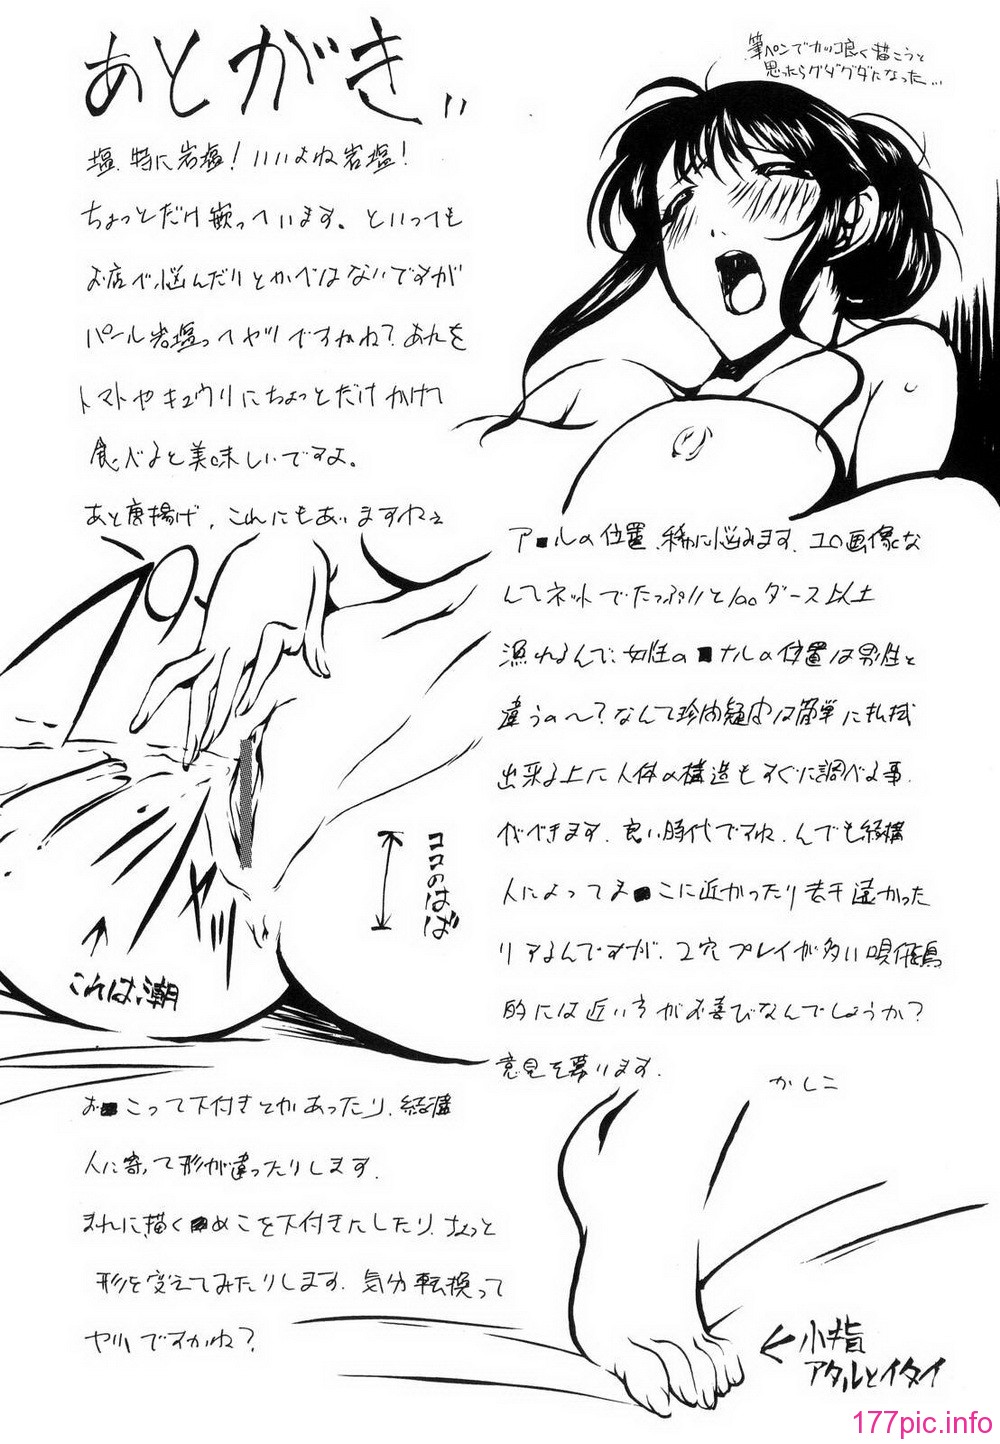 あとがき〃
筆ペンでカッコ良く描こうと
思ったらグダグダになった…
塩、特に岩塩！いいよね岩塩！
ちょっとだけ嵌っています。といっても
お店で悩んだりとかではないですが
パール岩塩ってヤツですかね？あれを
トマトやキュウリにちょっとだけかけて
食べると美味しいですよ。
あと唐揚げ、これにもあいますねぇ
ア■ルの位置、稀に悩みます、エロ画像な
んてネットでたっぷりと100ダース以上
漁れるんで、女性の■ナルの位置は男性と
違うの〜？なんて珍内疑惑は簡単に払拭
出来る上に人体の構造もすぐに調べる事
ができます。良い時代ですね、んでも結構
人によってま■こに近かったり若干遠かった
りアるんですが、2穴プレイが多い唄飛鳥
的には近い方がお喜びなんでしょうか？
意見を募います。
かしこ
ココのはば
ヤッ
これは、潮
お■こって下付きとかあったり、結構
人に寄って形が違ったりします。
まれに描く■めこを下付きにしたり、ちょっと
形を変えてみたりします、気分転換って
ヤツですかね？
小指
アタルとイタイ
177pic.info